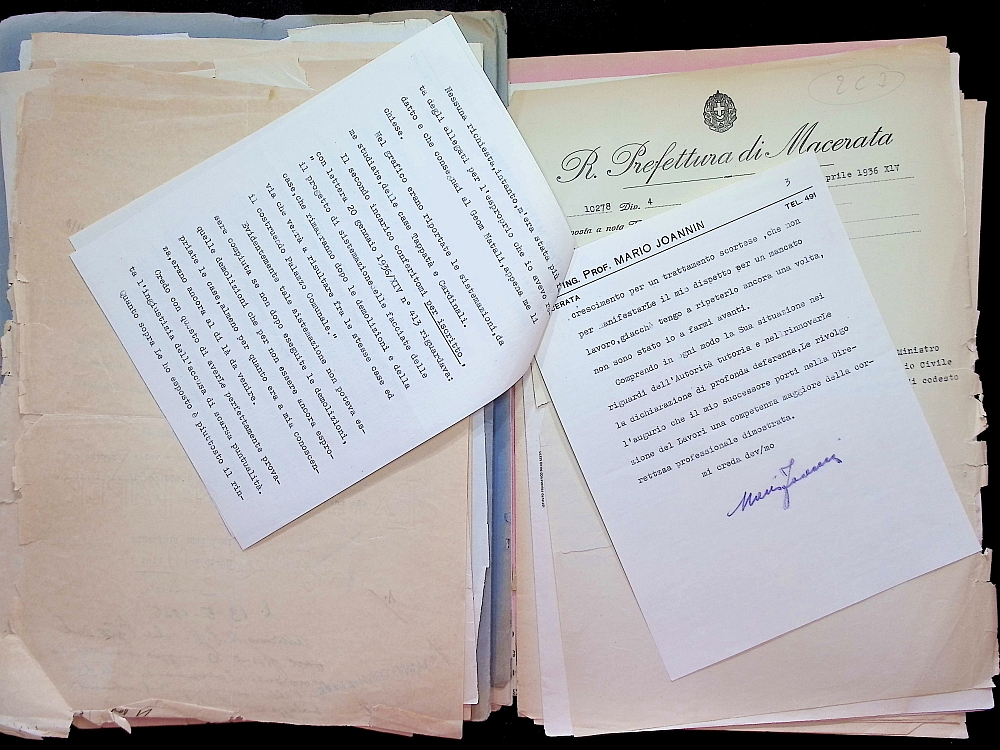 Nessuna richiesta, intanto, m'era stata più
ta degli allegati per l'esproprio che io avevo
datto e che consegnai al Geom Natali, appena me li
chiese.
Nel grafico erano riportate le sistemazioni, da
me studiate, delle case Tappatà e Cardinali.
Il secondo incarico conferitomi per iscritto,
con lettera 20 gennaio 1936/XIV n° 413 riguardava:
"il progetto di sistemazione delle facciate delle
case, che risulteranno dopo le demolizioni e della
via che verrà a risultare fra le stesse case ed
il costruendo Palazzo Comunale."
Evidentemente tale sistemazione non poteva es-
sere compiuta se non dopo eseguite le demolizioni,
quelle demolizioni che per non essere ancora espro-
priate le case, almeno per quanto era a mia conoscen-
na, erano ancora al di là da venire.
Credo con questo di averLe perfettamente prova-
ta l'ingiustizia dell'accusa di scarsa puntualità.
Quanto sopra Le ho esposto è piuttosto il rin-
263
R. Prefettura di Macerata
prile 1936 XIV
10278 Div. 4
3
ING. PROF. MARIO JOANNIN
TEL. 491
ERATA
crescimento per un trattamento scortese, che non
per manifestarLe il mio dispetto per un mancato
lavoro, giacchè tengo a ripeterlo ancora una volta,
non sono stato io a farmi avanti.
Comprendo in ogni modo la Sua situazione nei
riguardi dell'Autorità tutoria e nel rinnovarLe
la dichiarazione di profonda deferenza, Le rivolgo
l'augurio che il mio successore porti nella Dire-
zione dei Lavori una competenza maggiore della cor-
rettzza professionale dimostrata.
mi creda dev/mo
Mario Joannin
Ministro
io Civile
i codesto